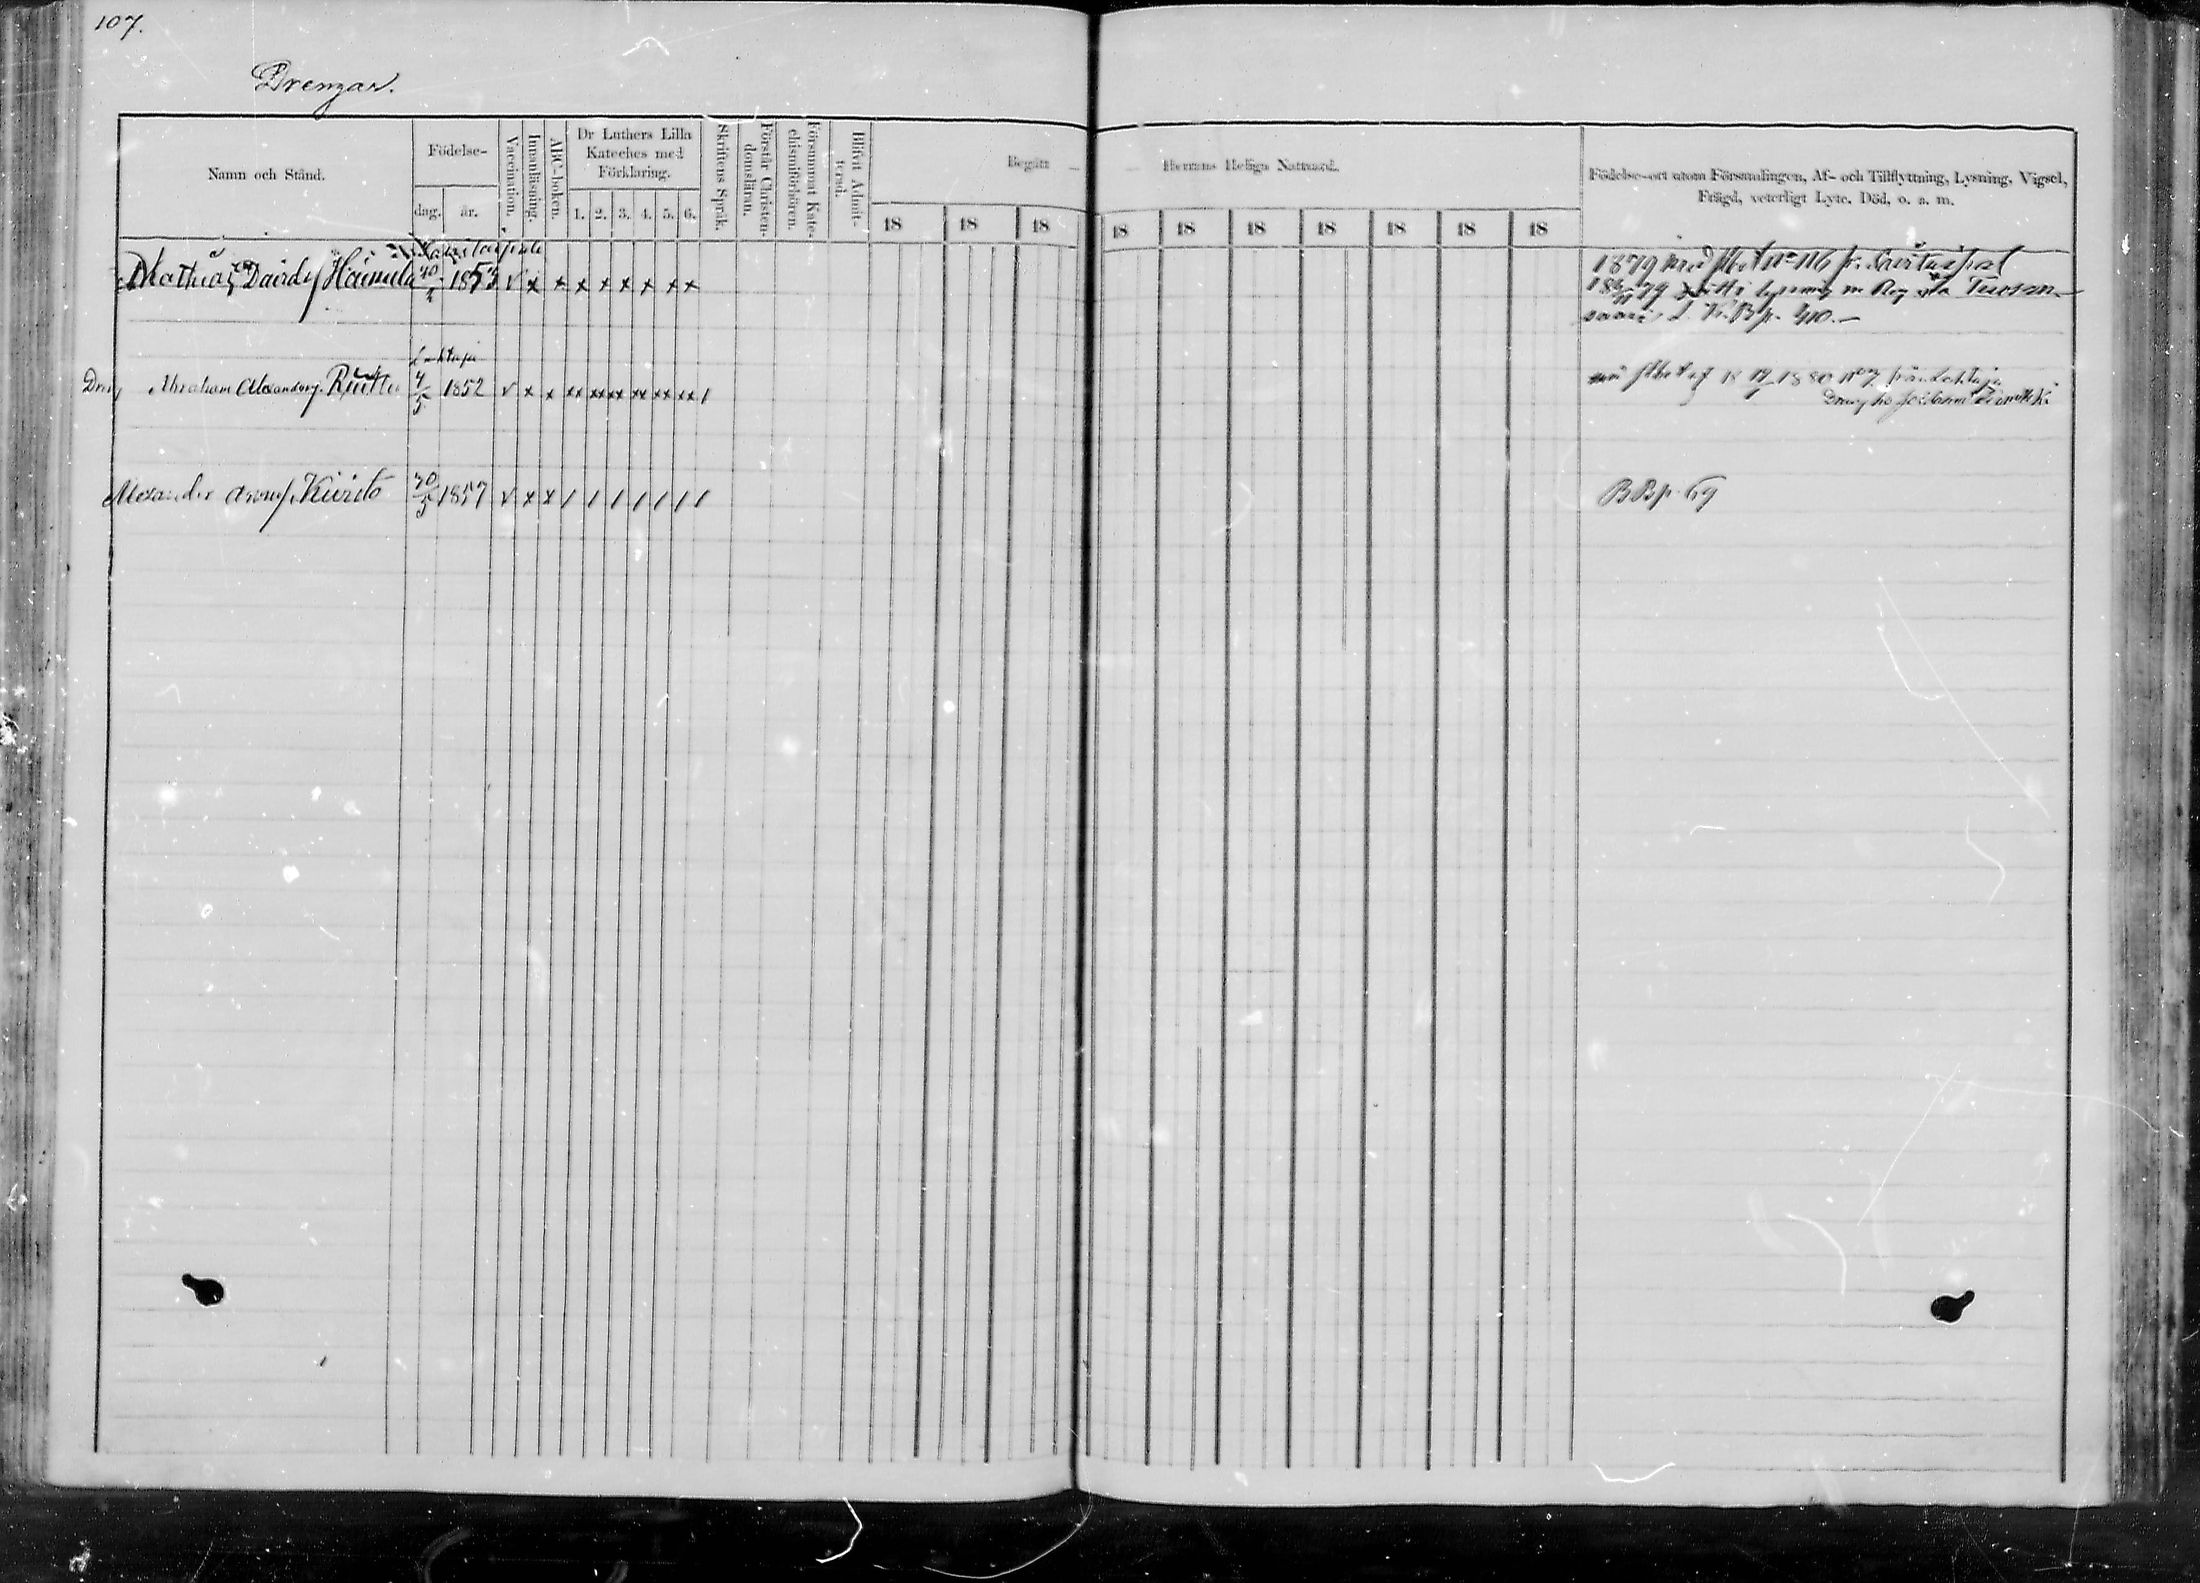 107.
Drengar.
Namn och Stånd.
Födelse-
dag.
år.
Vaccination.
Innanläsning.
ABC-boken.
Dr Luthers Lilla
Kateches med
Förklaring.
1. 2. 3. 4. 5. 6.
Skriftens Språk.
Förstår Christen-
domsläran.
Försummat Kate-
chismiförhören.
Blifvit Admit-
terad.
Begått — — Herrans Heliga Nattvard.
18 18 18 18 18 18 18 18 18 18
Födelse-ort utom Församlingen, Af- och Tillflyttning, Lysning, Vigsel,
Frägd, veterligt Lyte, Död, o. a. m.
Savitaipale
Mathias Davidsf Heimula 1853 v x x x x x x x x
1879 med flbet No 116 fr. Savitaipal
79 lysning m
p. 410.—
Luhtaja
Dreng Abraham Alexandersf. 4/5 1852 v x x xx xx xx xx xx xx /
flbet af 1880 No 7 från
Dreng hos
Alexander Kivisto 30/5 1857 v x x / / / / / / /
BB p. 69